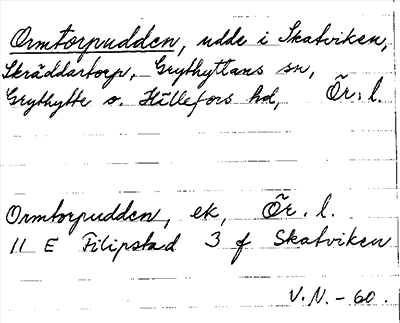 Ormtorpudden, udde i Skatviken,
Skräddartorp, Grythyttans sn,
Grythytte o. Hällefors hd, Ör. l.
Ormtorpudden, ek, Ör. l.
11 E Filipstad 3 f Skatviken
V.N. - 60.